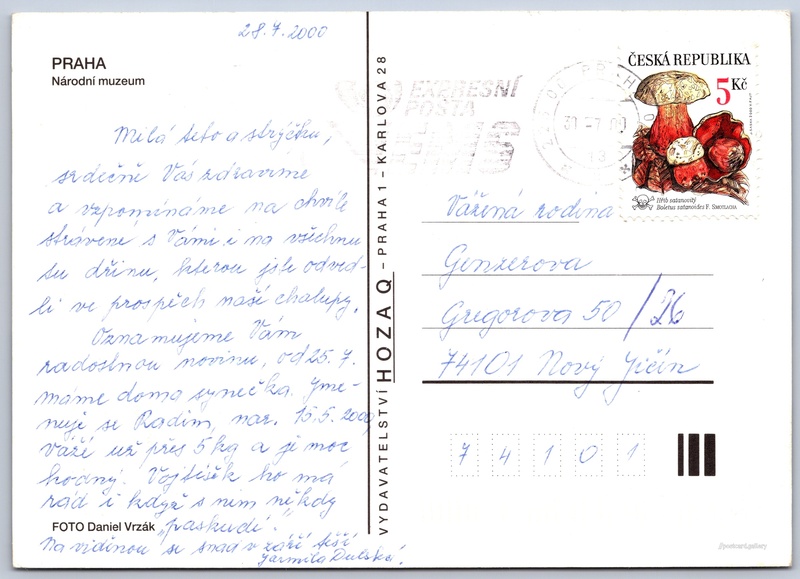 28.7.2000
PRAHA
Národní muzeum
Milá teto a strýčku,
srdečně Vás zdravíme
a vzpomínáme na chvíle
strávené s Vámi i na všechnu
tu dřinu, kterou jste odved-
li ve prospěch naší chalupy.
Oznamujeme Vám
radostnou novinu, od 25. 7.
máme doma synečka. Jme-
nuje se Radim, nar. 15.5. 2000
váží už přes 5 kg a je moc
hodný. Vojtíšek ho má
rád i když s ním někdy
"paskudí".
FOTO Daniel Vrzák
Na viděnou se snad v září těší
Jarmila
VYDAVATELSTVÍ HOZA Q - PRAHA 1 - KARLOVA 28
EXPRESNÍ
POŠTA
ČESKÁ REPUBLIKA
5 Kč
Hřib satanovitý
Boletus satanoides F. SMOTLACHA
Vážená rodina
Genzerova
Gregorova 50/26
74101 Nový Jičín
7 4 1 0 1